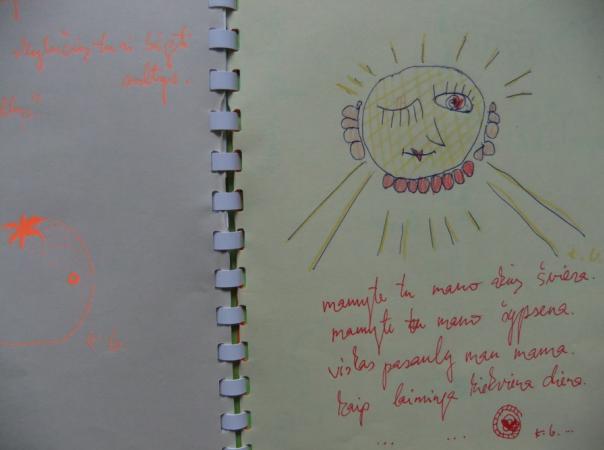 tu
K.G.
K.G.
mamyte tu mano akių šviesa.
mamyte tu mano šypsena.
viskas pasauly man mama.
kaip laiminga kiekviena diena.
... ... K.G...